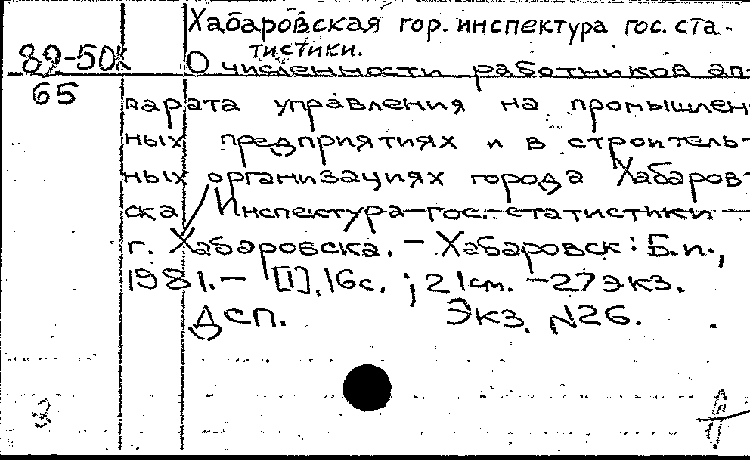 Хабаровская гор. инспектура гос. ста-
тистики.
89-50к
65
О численности работников ап-
парата управления на промышлен-
ных предприятиях и в строитель-
ных организациях города Хабаров-
ска Инспектура гос. статистики
г. Хабаровска. – Хабаровск: Б.и.,
1981. – [1], 16с. ; 21см. – 27экз.
ДСП. Экз. №26.
3